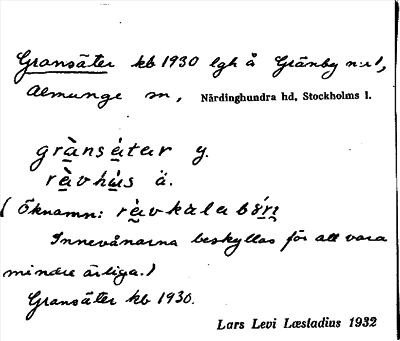 Gransäter kb 1930 lgh å Gränby n:r 1,
Almunge sn, Närdinghundra hd, Stockholms l.
grànsátar y.
ràvhús ä.
( Öknamn: ràvkùla
Innevånarna beskyllas för att vara
mindre ärliga.)
Gransäter kb 1930.
Lars Levi Læstadius 1932